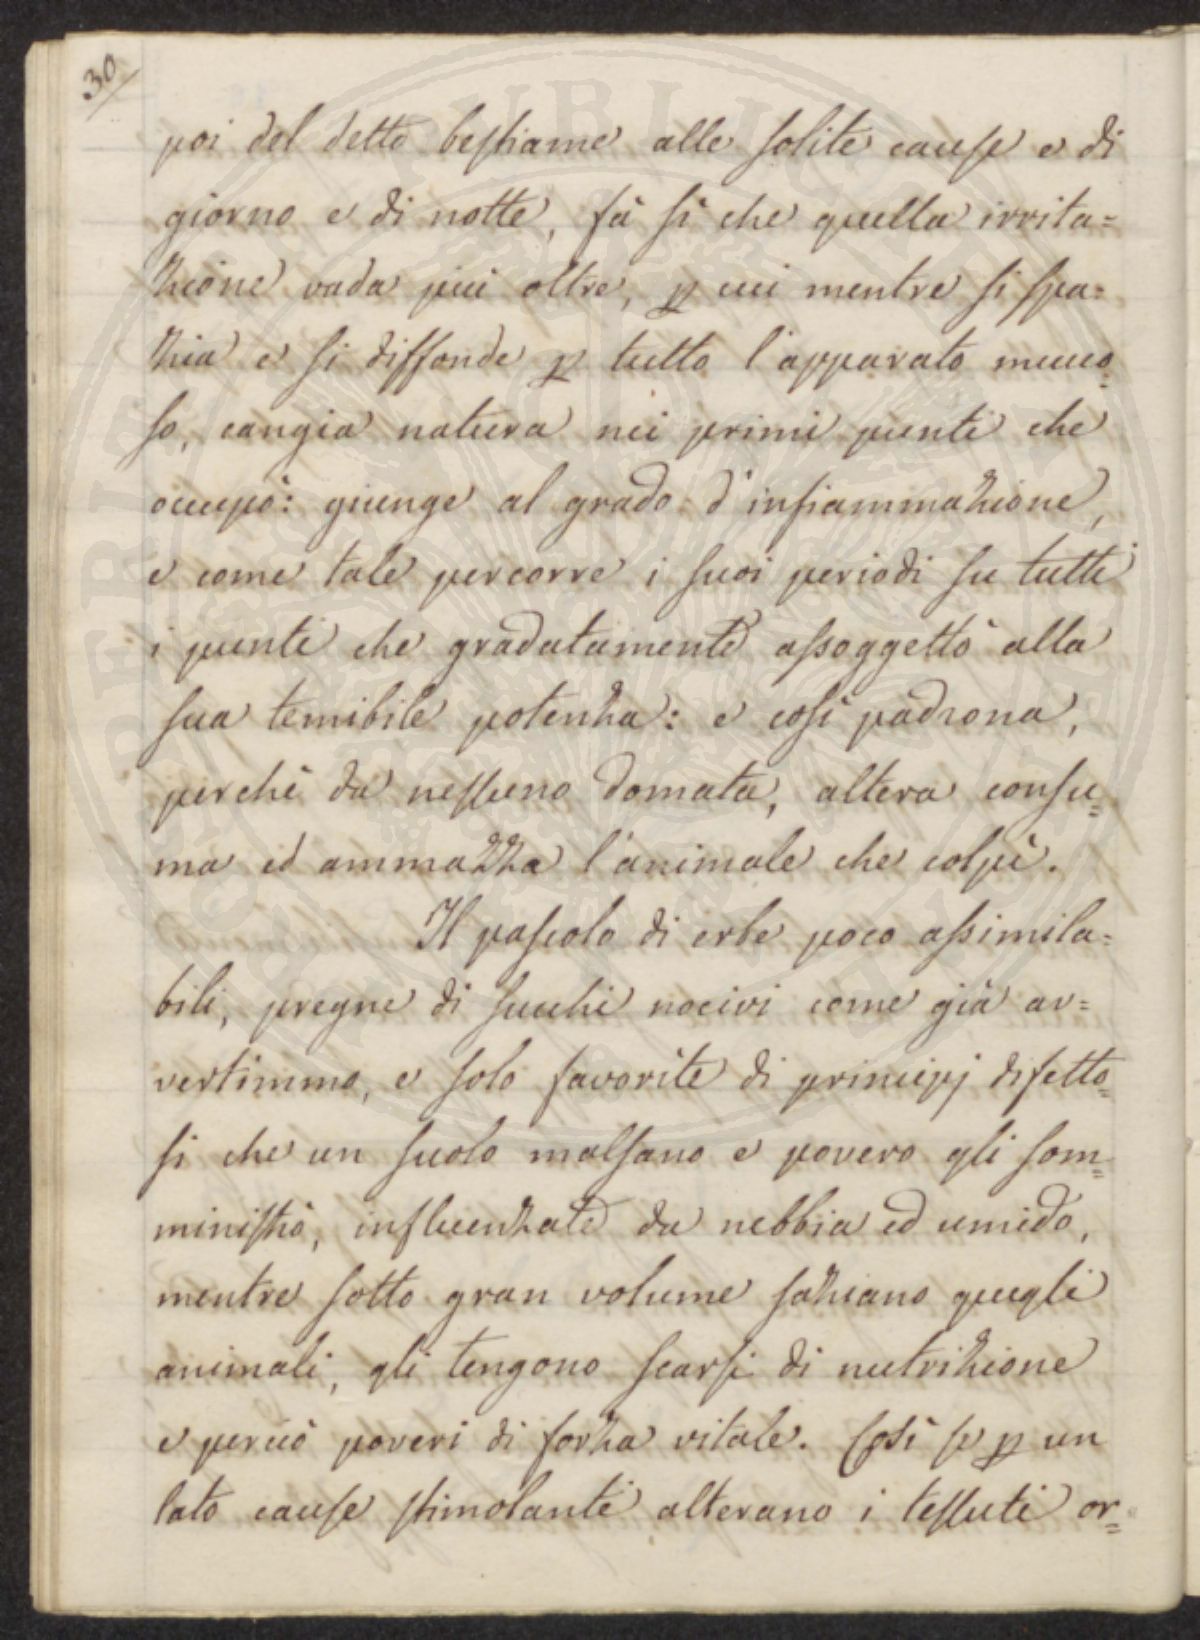 30/
poi del detto bestiame alle solite cause e di
giorno e di notte, fà sì che quella irrita=
zione vada più oltre, p cui mentre si spa=
zia e si diffonde p tutto l'apparato muco=
so, cangia natura nei primi punti che
occupò: giunge al grado d'infiammazione,
e come tale percorre i suoi periodi su tutti
i punti che gradatamente assoggettò alla
sua temibile potenza: e così padrona,
perchè da nessuno domata, altera consu=
ma ed ammazza l'animale che colpì.
Il pascolo di erbe poco assimila=
bili, pregne di succhi nocivi come già av=
vertimmo, e solo favorite di principj difetto=
si che un suolo malsano e povero gli som=
ministrò, influenzate da nebbia ed umido,
mentre sotto gran volume saziano quegli
animali, gli tengono scarsi di nutrizione
e perciò poveri di forza vitale. Così se p un
lato cause stimolanti alterano i tessuti or=